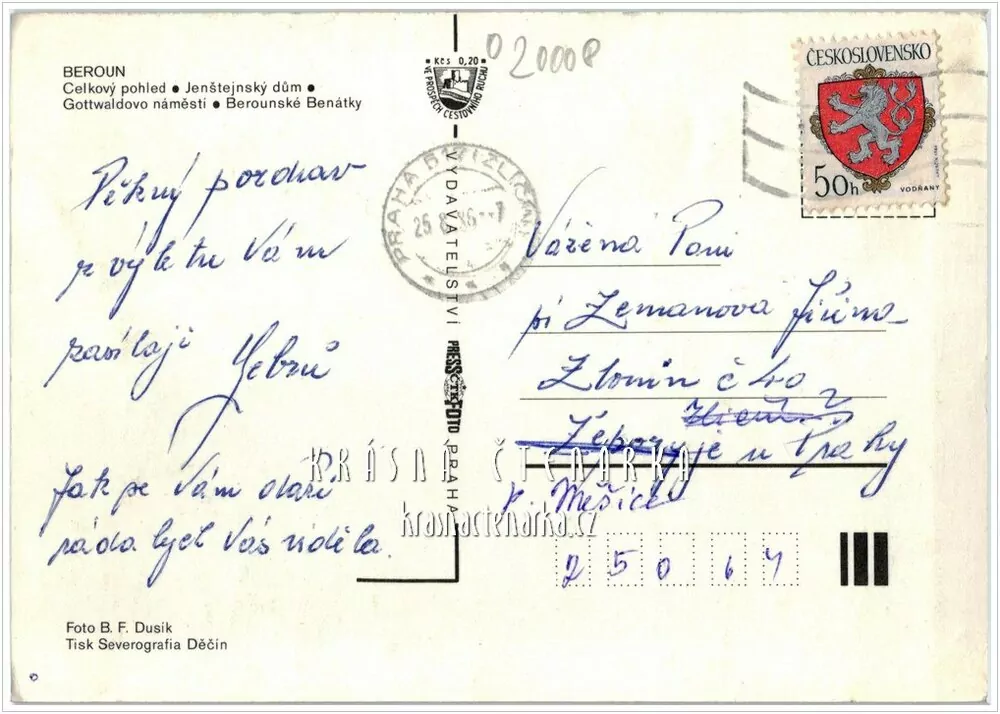 BEROUN
Celkový pohled ● Jenštejnský dům ●
Gottwaldovo náměstí ● Berounské Benátky
Pěkný pozdrav
z výletu Vám
zasílají
Jak se Vám daří
ráda bych Vás viděla.
Foto B. F. Dusík
Tisk Severografia Děčín
Kčs 0,20
VE PROSPĚCH CESTOVNÍHO RUCHU
VYDAVATELSTVÍ PRESSFOTO PRAHA
ČTK
02000P
PRAHA
25 8 86 -7
ČESKOSLOVENSKO
50h
VODŇANY
Vážená Paní
pí Zemanova Jiřina
Zlonín č 40
u Prahy
p. Měšice
250 64
KRÁSNÁ ČTENÁŘKA
krasnactenarka.cz